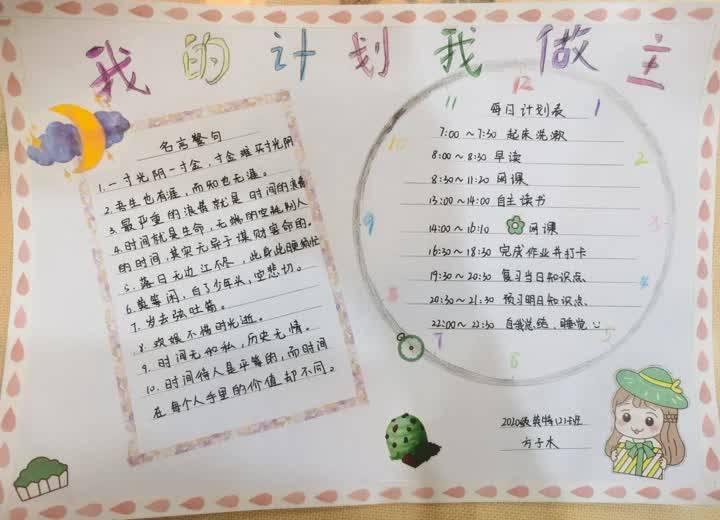 我的计划我做主
名言警句
1.一寸光阴一寸金,寸金难买寸光阴
2.吾生也有涯,而知也无涯。
3.最严重的浪费就是时间的浪费
4.时间就是生命,无端的空耗别人
的时间,其实无异于谋财害命的。
5.落日无边江不尽,此身此日须
6.莫等闲,白了少年头,空悲切。
7.岁去弦吐箭。
8.欢娱不惜时光逝。
9.时间无私,历史无情。
10.时间待人是平等的,而时间
在每个人手里的价值却不同。
每日计划表
7:00~7:30 起床洗漱
8:00~8:30 早读
8:30~11:20 网课
13:00~14:00 自主读书
14:00~16:10 网课
16:30~18:30 完成作业并打卡
19:30~20:30 复习当日知识点
20:30~21:30 预习明日知识点
22:00~22:30 自我总结、睡觉
12
1
2
3
4
5
6
7
8
9
10
11
2020级英特(2)班
方子木